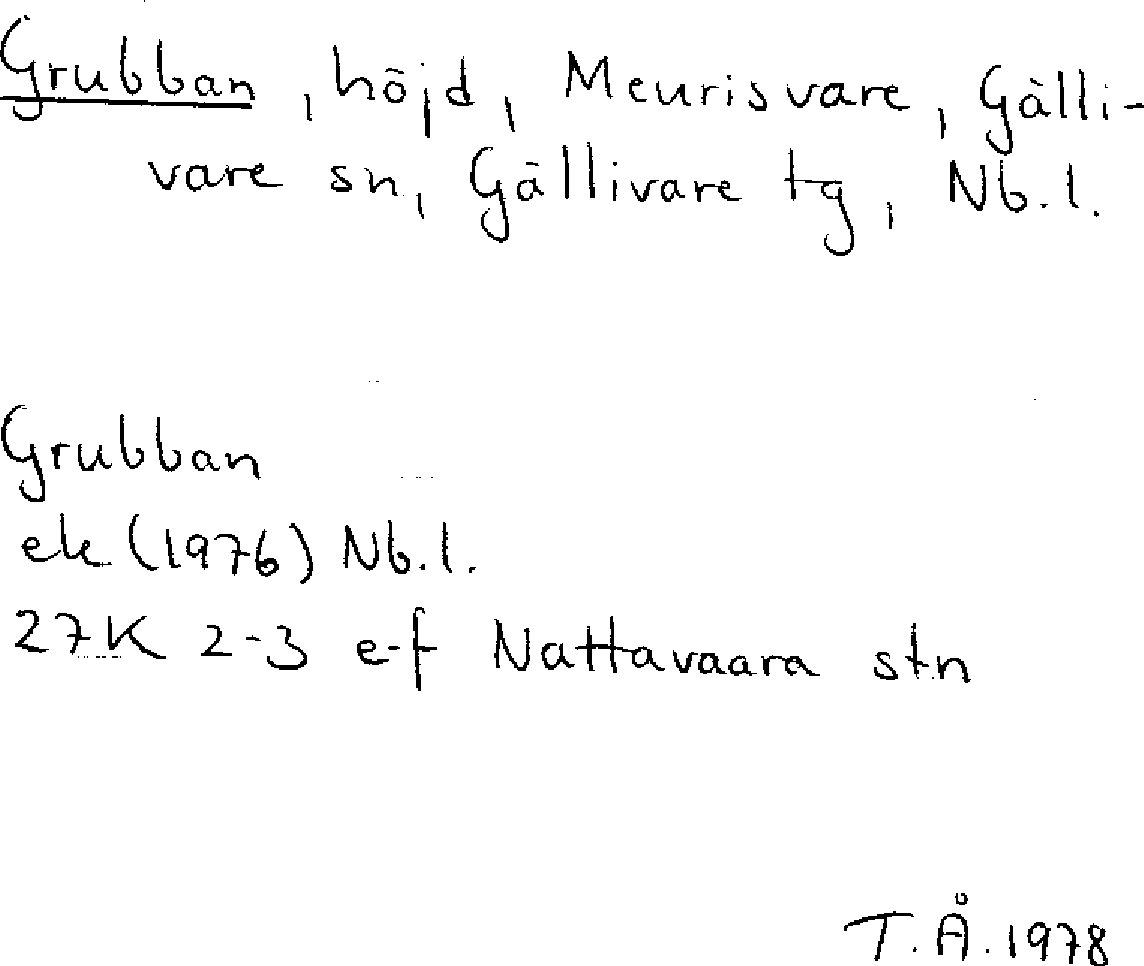 Grubban, höjd, Meurisvare, Gälli-
vare sn, Gällivare tg, Nb.l.
Grubban
ek (1976) Nb.l.
27K 2-3 e-f Nattavaara stn
T.Å. 1978